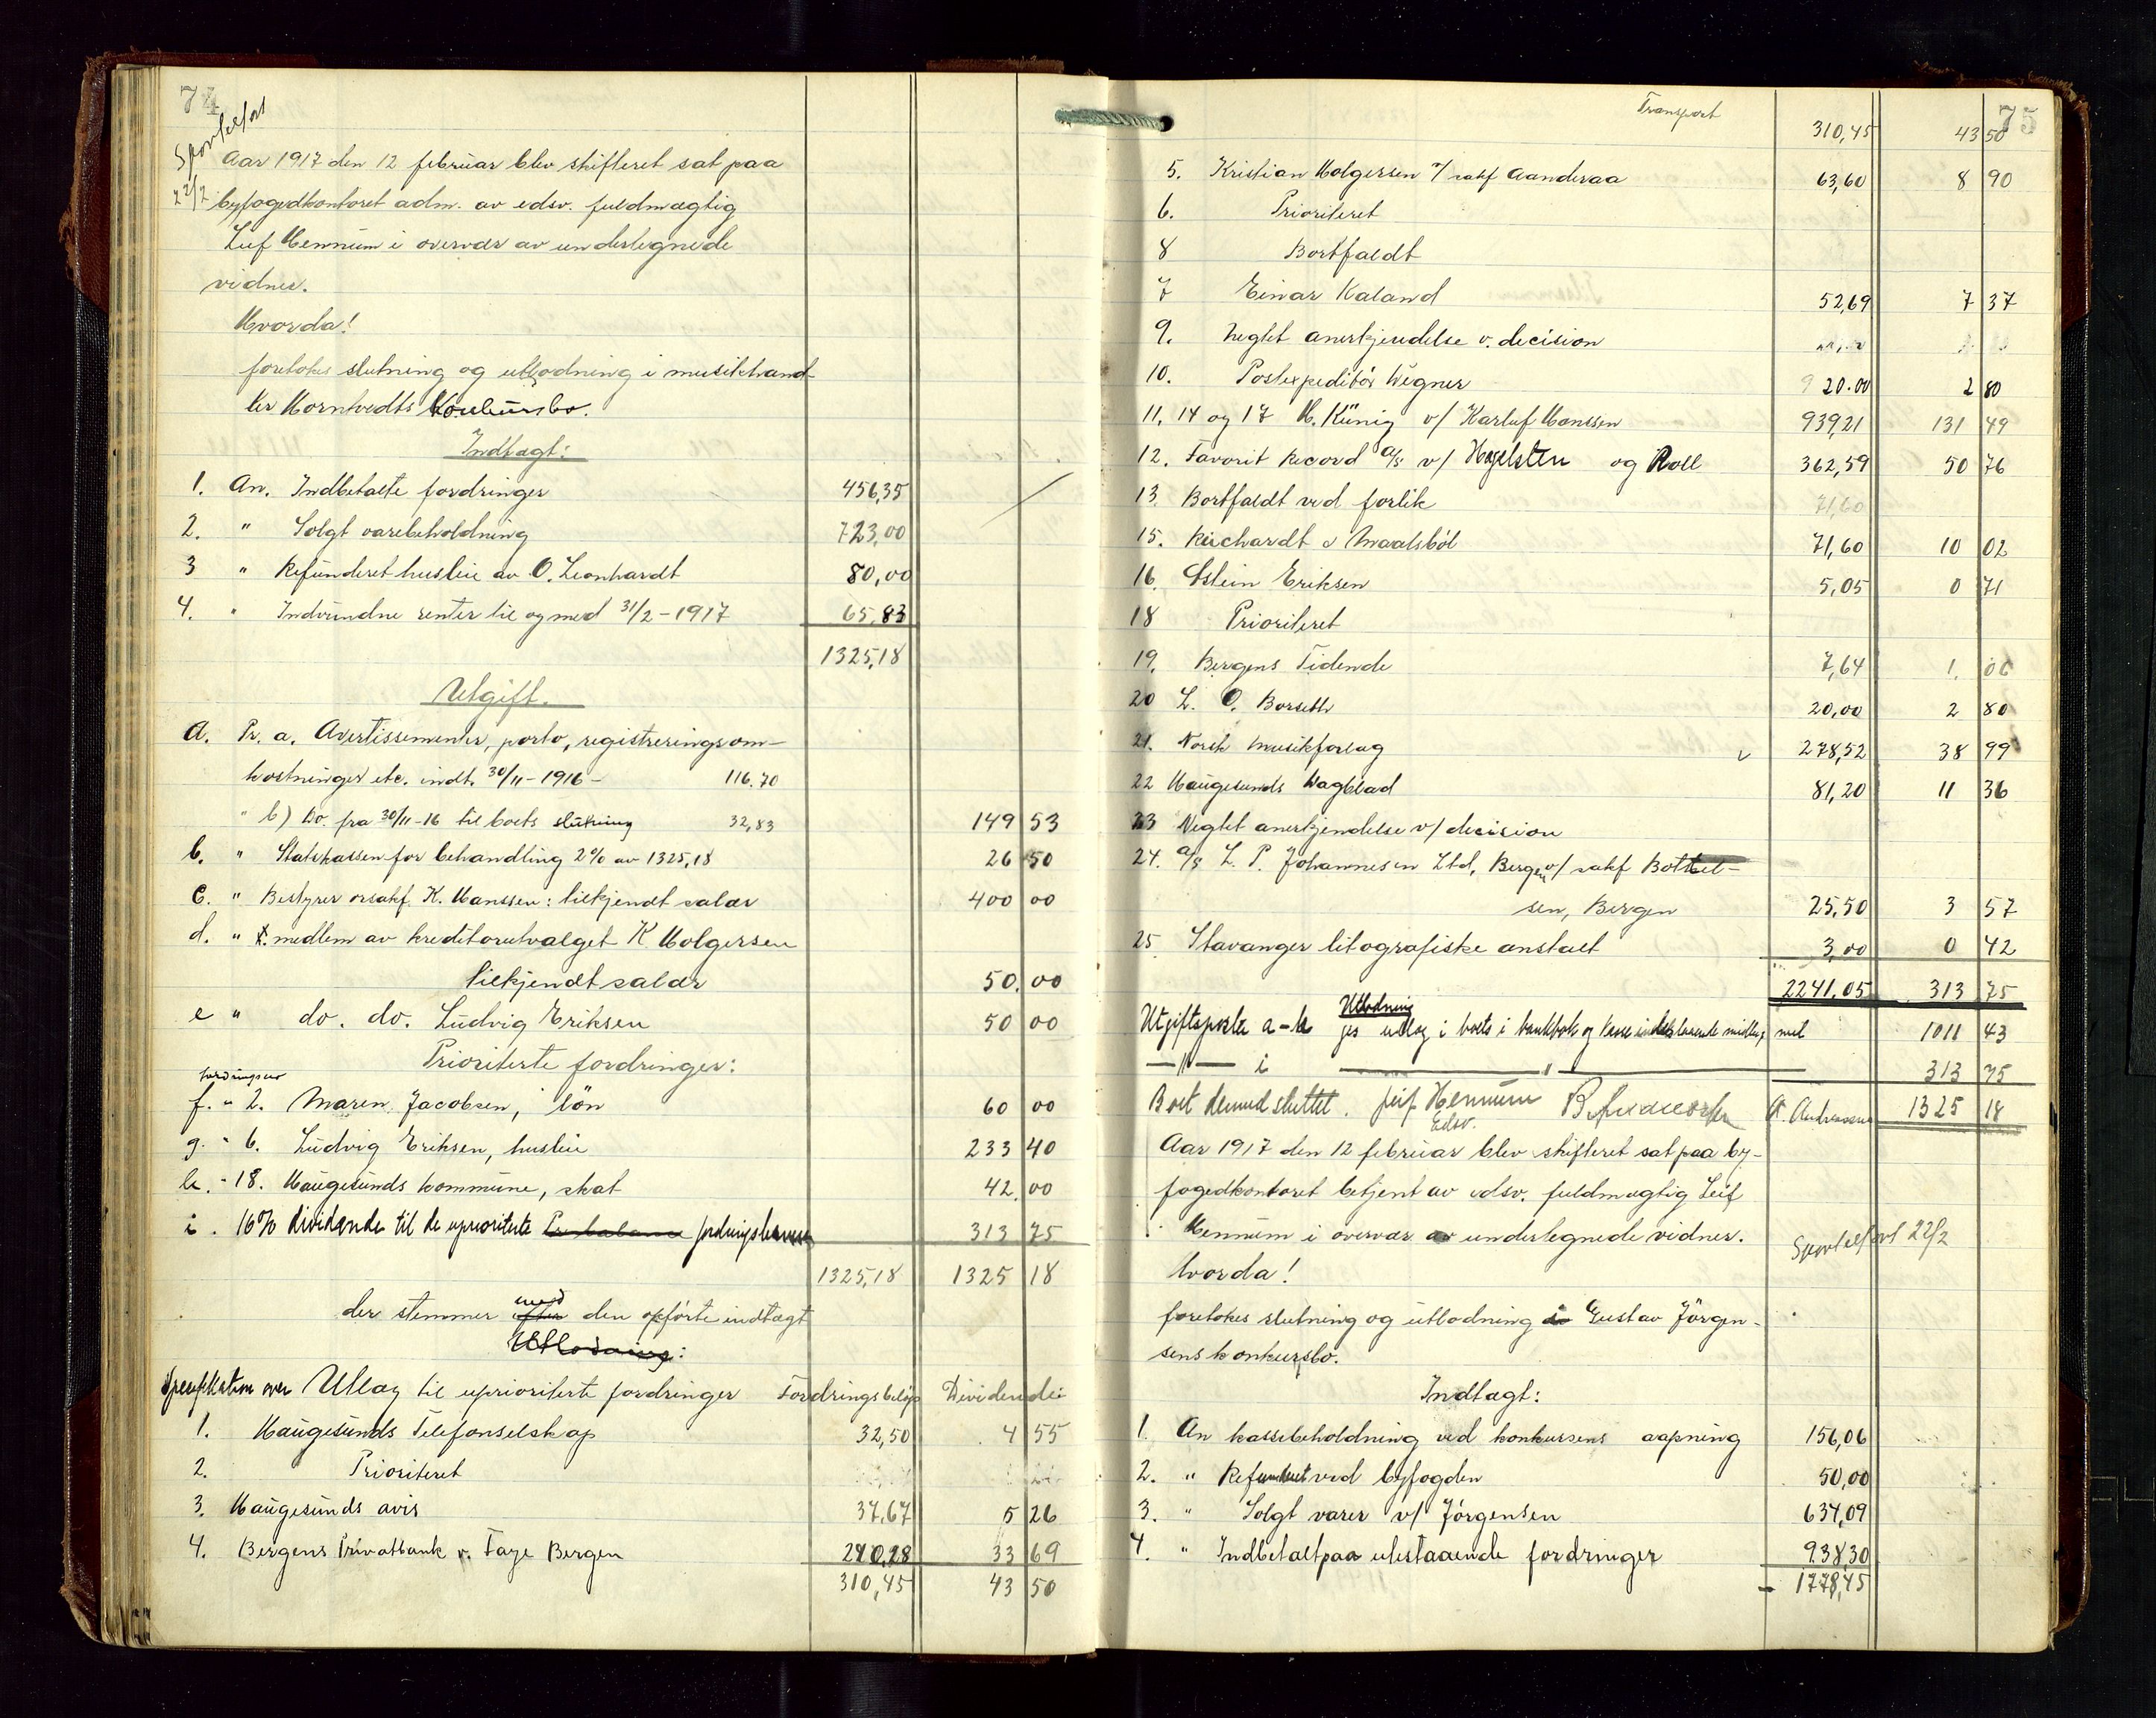 74
Sportelført
22/2
Aar 1917 den 12 februar blev skifteret sat paa
byfogedkontoret adm. av edsv. fuldmægtig
Leif Hennum i overvær av undertegnede
vidner.
Hvorda!
foretokes slutning og utlodning i musikhand-
ler Horntvedts konkursbo.
Indtægt:
1. An. Indbetalte fordringer 456,35
2. " Solgt varebeholdning 723,00
3 " Refunderet husleie av O. Leonhardt 80,00
4. " Indvundne renter til og med 31/2-1917 65,83
1325,18
Utgift.
a. Pr. a. Avertissementer, porto, registreringsom-
kostninger etc. indt. 30/11-1916- 116.70
" b) Do. fra 30/11-16 til boets slutning 32,83 149 53
b. " Statskassen for behandling 2% av 1325,18 26 50
c. " Bestyrer orsakf. K. Hanssen: tilkjendt salær 400 00
d. " medlem av kreditorutvalget K Holgersen
tilkjendt salær 50.00
e " do. do. Ludvig Eriksen 50 00
Prioriterte fordringer:
fordringsnr
f. " 2. Maren Jacobsen, lön 60 00
g. " 6. Ludvig Eriksen, husleie 233 40
h. " 18. Haugesunds kommune, skat 42.00
i. 16% dividende til de upriorterte Pr balance fordringshavere 313 75
1325,18 1325 18
der stemmer efter med den opførte indtægt
Utlodning:
Specifikation over Utlæg til uprioriterte fordringer Fordringsbeløp Dividende
1. Haugesunds Telefonselskap 32,50 4 55
2. Prioriteret
3. Haugesunds avis 37,67 5 26
4. Bergens Privatbank v. Faye Bergen 240.28 33 69
310,45 43 50
75
Transport 310,45 43 50
5. Kristian Holgersen v/ sakf Aanderaa 63,60 8 90
6. Prioriteret
8 Bortfaldt
7 Einar Kaland 52,69 7 37
9. Neglet anerkjendelse v. decision
10. Postexpeditør Wegner 20.00 2 80
11, 14 og 17 H. Künig v/ Karluf Hanssen 939,21 131 49
12. Favorit Record a/s v/ Hagelsten og Roll 362,59 50 76
13. Bortfaldt ved forlik 71,60
15. Richardt & Maalsböl 71,60 10 02
16. Østein Eriksen 5,05 0 71
18 Prioriteret
19. Bergens Tidende 7,64 1. 06
20 L. O. Borseth 20,00 2 80
21. Norsk musikforlag 278,52 38 99
22 Haugesunds Dagblad 81,20 11 36
23 Neglet anerkjendelse v/ decision
24. a/s L. P. Johannesen Ltd, Bergen v/ sakf Bottel-
sen, Bergen 25,50 3 57
25. Stavanger litografiske anstalt 3,00 0 42
2241,05 313 75
Utlodning
Utgiftsposter a-h gis utlæg i boets i bankbok og kasse indestaaende midler, med 1011 43
—"— i " 313 75
Boet dermed sluttet. Leif Hennum A. Andreassen 1325 18
Edsv.
Aar 1917 den 12 februar blev skifteret sat paa by-
fogedkontoret betjent av edsv. fuldmægtig Leif
Hennum i overvær av undertegnede vidner.
Sportelført 22/2
Hvorda!
foretokes slutning og utlodning i Gustav Jörgen-
sens konkursbo.
Indtægt:
1. An kassebeholdning ved konkursens aapning 156,06
2. " Refunderet ved byfogden 50,00
3. " Solgt varer v/ Jörgensen 634,09
4. " Indbetalt paa utestaaende fordringer 938,30
1778,45